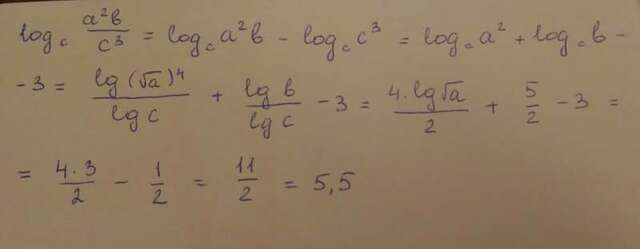 log_c a²b/c³ = log_c a²b - log_c c³ = log_c a² + log_c b -
- 3 = lg(√a)⁴/lg c + lg b/lg c - 3 = 4·lg√a/2 + 5/2 - 3 =
= 4·3/2 - 1/2 = 11/2 = 5,5